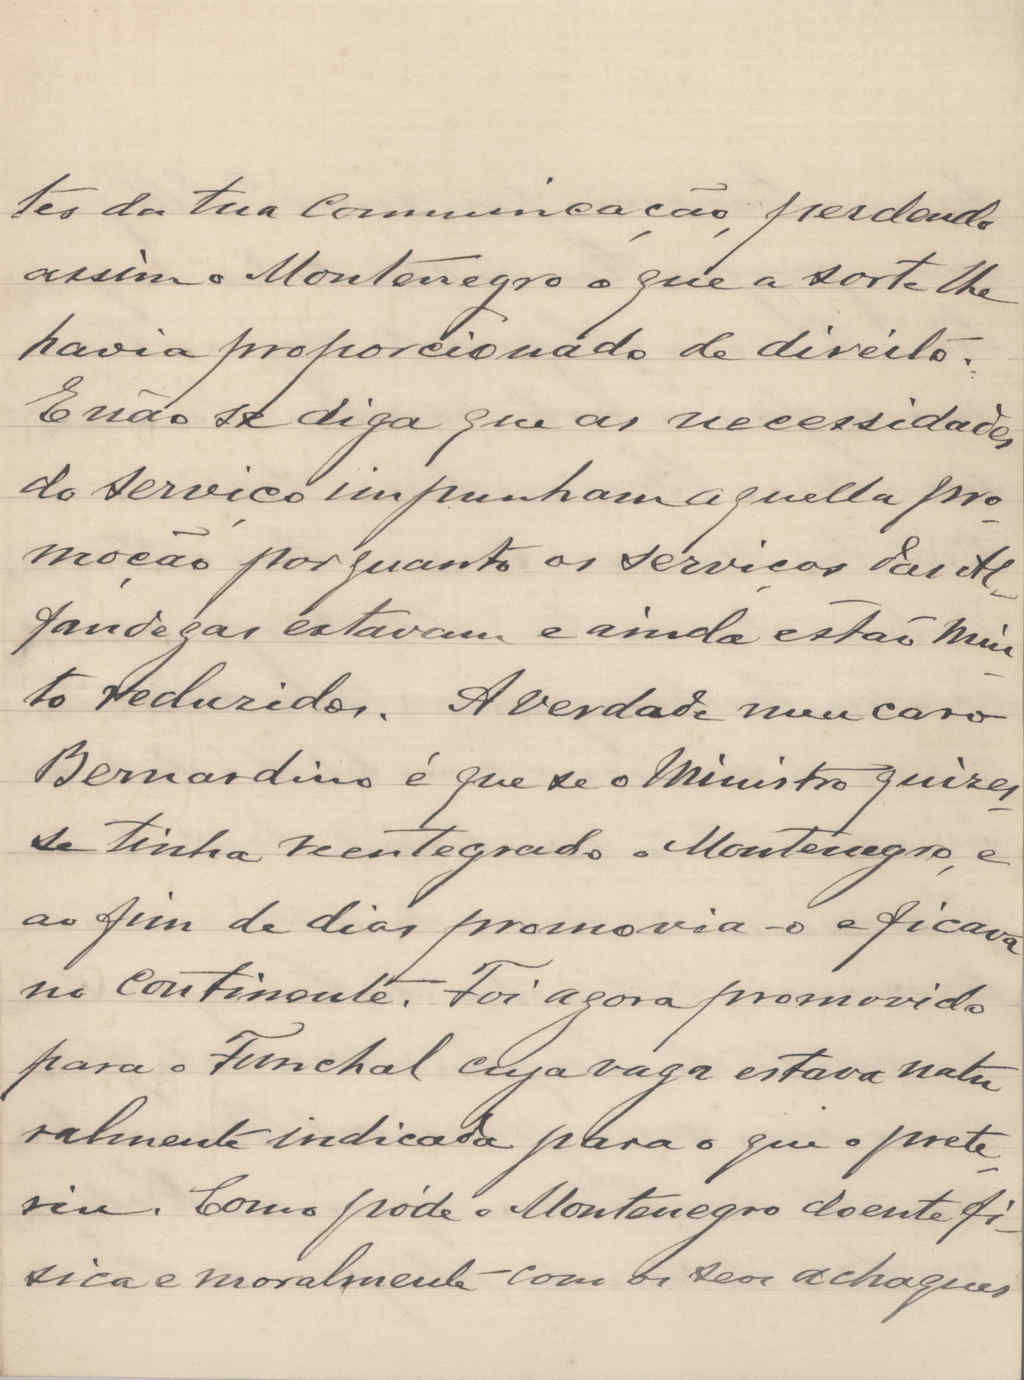 tes da tua communicação, perdendo
assim o Montenegro o que a sorte lhe
havia proporcionado de direito.
E não se diga que as necessidades
do serviço impunham aquella pro-
moção porquanto os serviços das Al-
fandegas estavam e ainda estão mui-
to reduzidos. A verdade meu caro
Bernardino é que se o Ministro quizes-
se tinha reentegrado o Montenegro, e
ao fim de dias promovia-o e ficava
no continente. Foi agora promovido
para o Funchal cuja vaga estava natu
ralmente indicada para o que o prete-
riu. Como póde o Montenegro doente fi-
sica e moralmente com os seos achaques